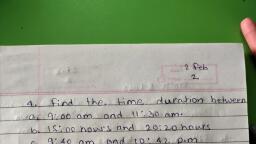 2 Feb
2
4. Find the time duration between
a. 9:00 am and 11:30 am.
b. 15:00 hours and 20:20 hours
c. 9:40 am and 10:42 pm